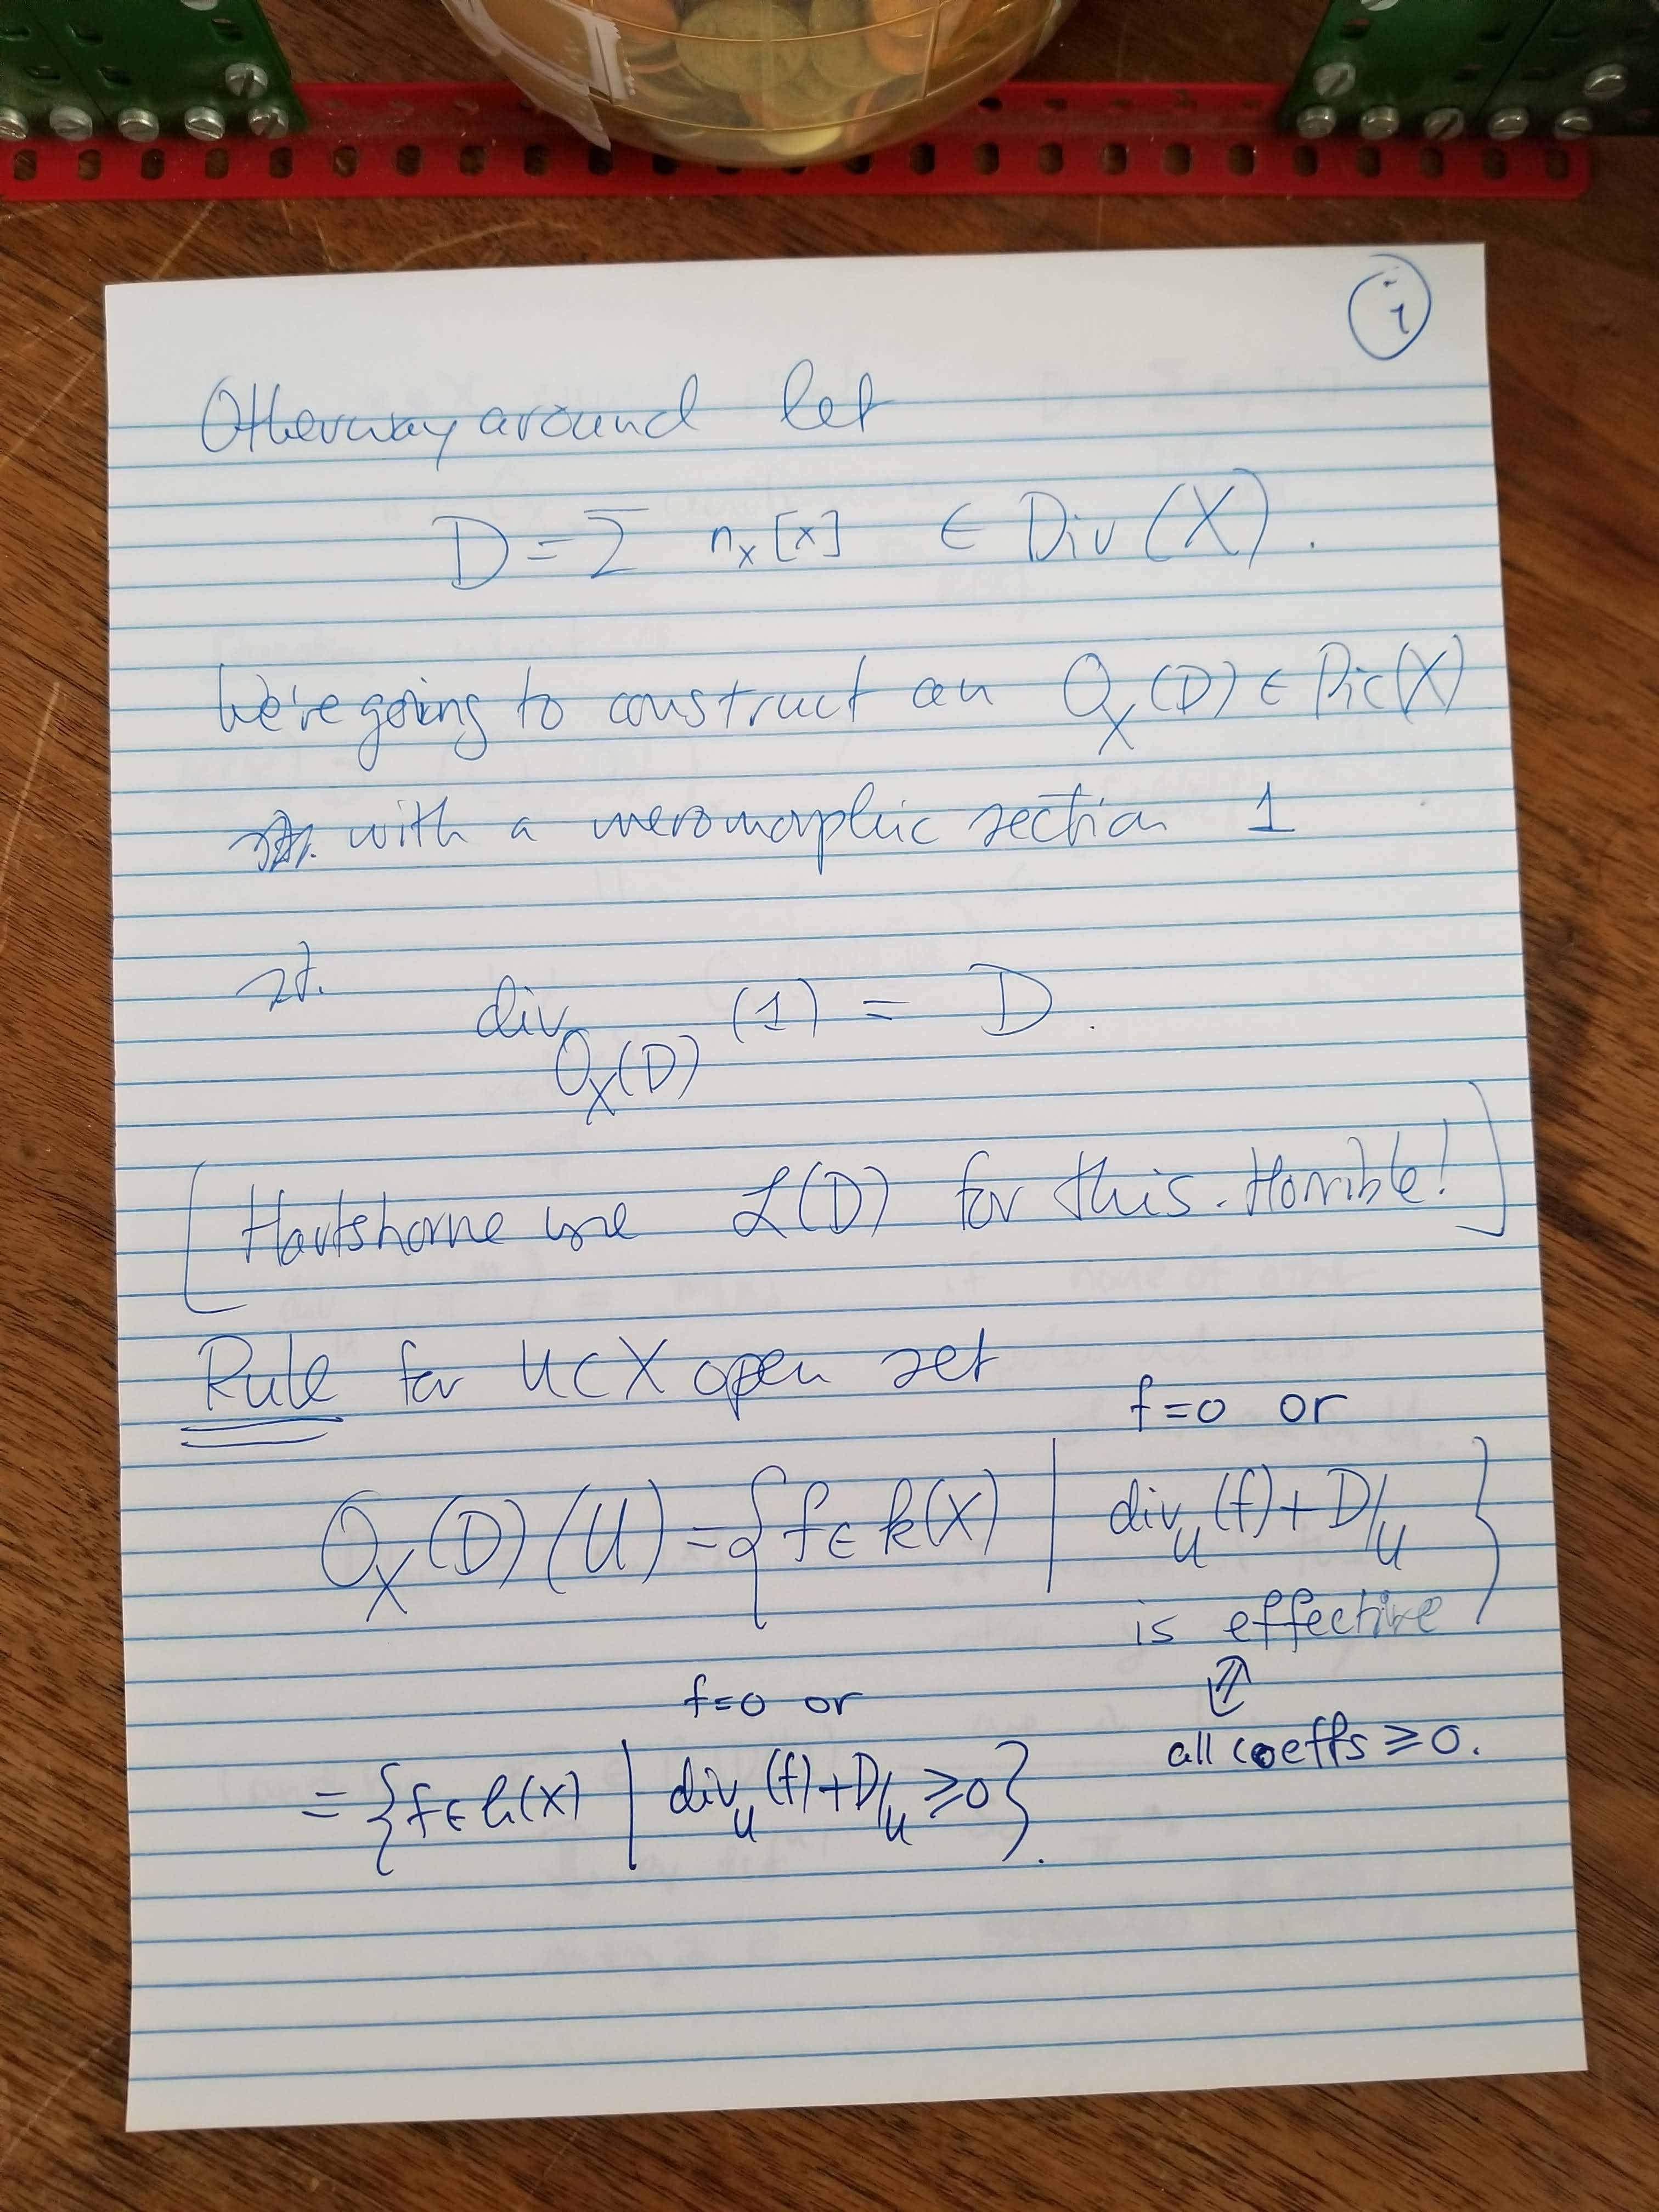 1
Otherway around let
D = Σ nₓ[x] ∈ Div(X).
We're going to construct an O_X(D) ∈ Pic(X)
with a meromorphic section 1
st.
div_{O_X(D)} (1) = D.
[Hartshorne use ℒ(D) for this. Horrible!]
Rule for U ⊂ X open set
f=0 or
O_X(D)(U) = { f ∈ k(X) | div_U(f) + D|_U }
is effective
⇕
f=0 or
all coeffs ≥ 0.
= { f ∈ k(X) | div_U(f) + D|_U ≥ 0 }.